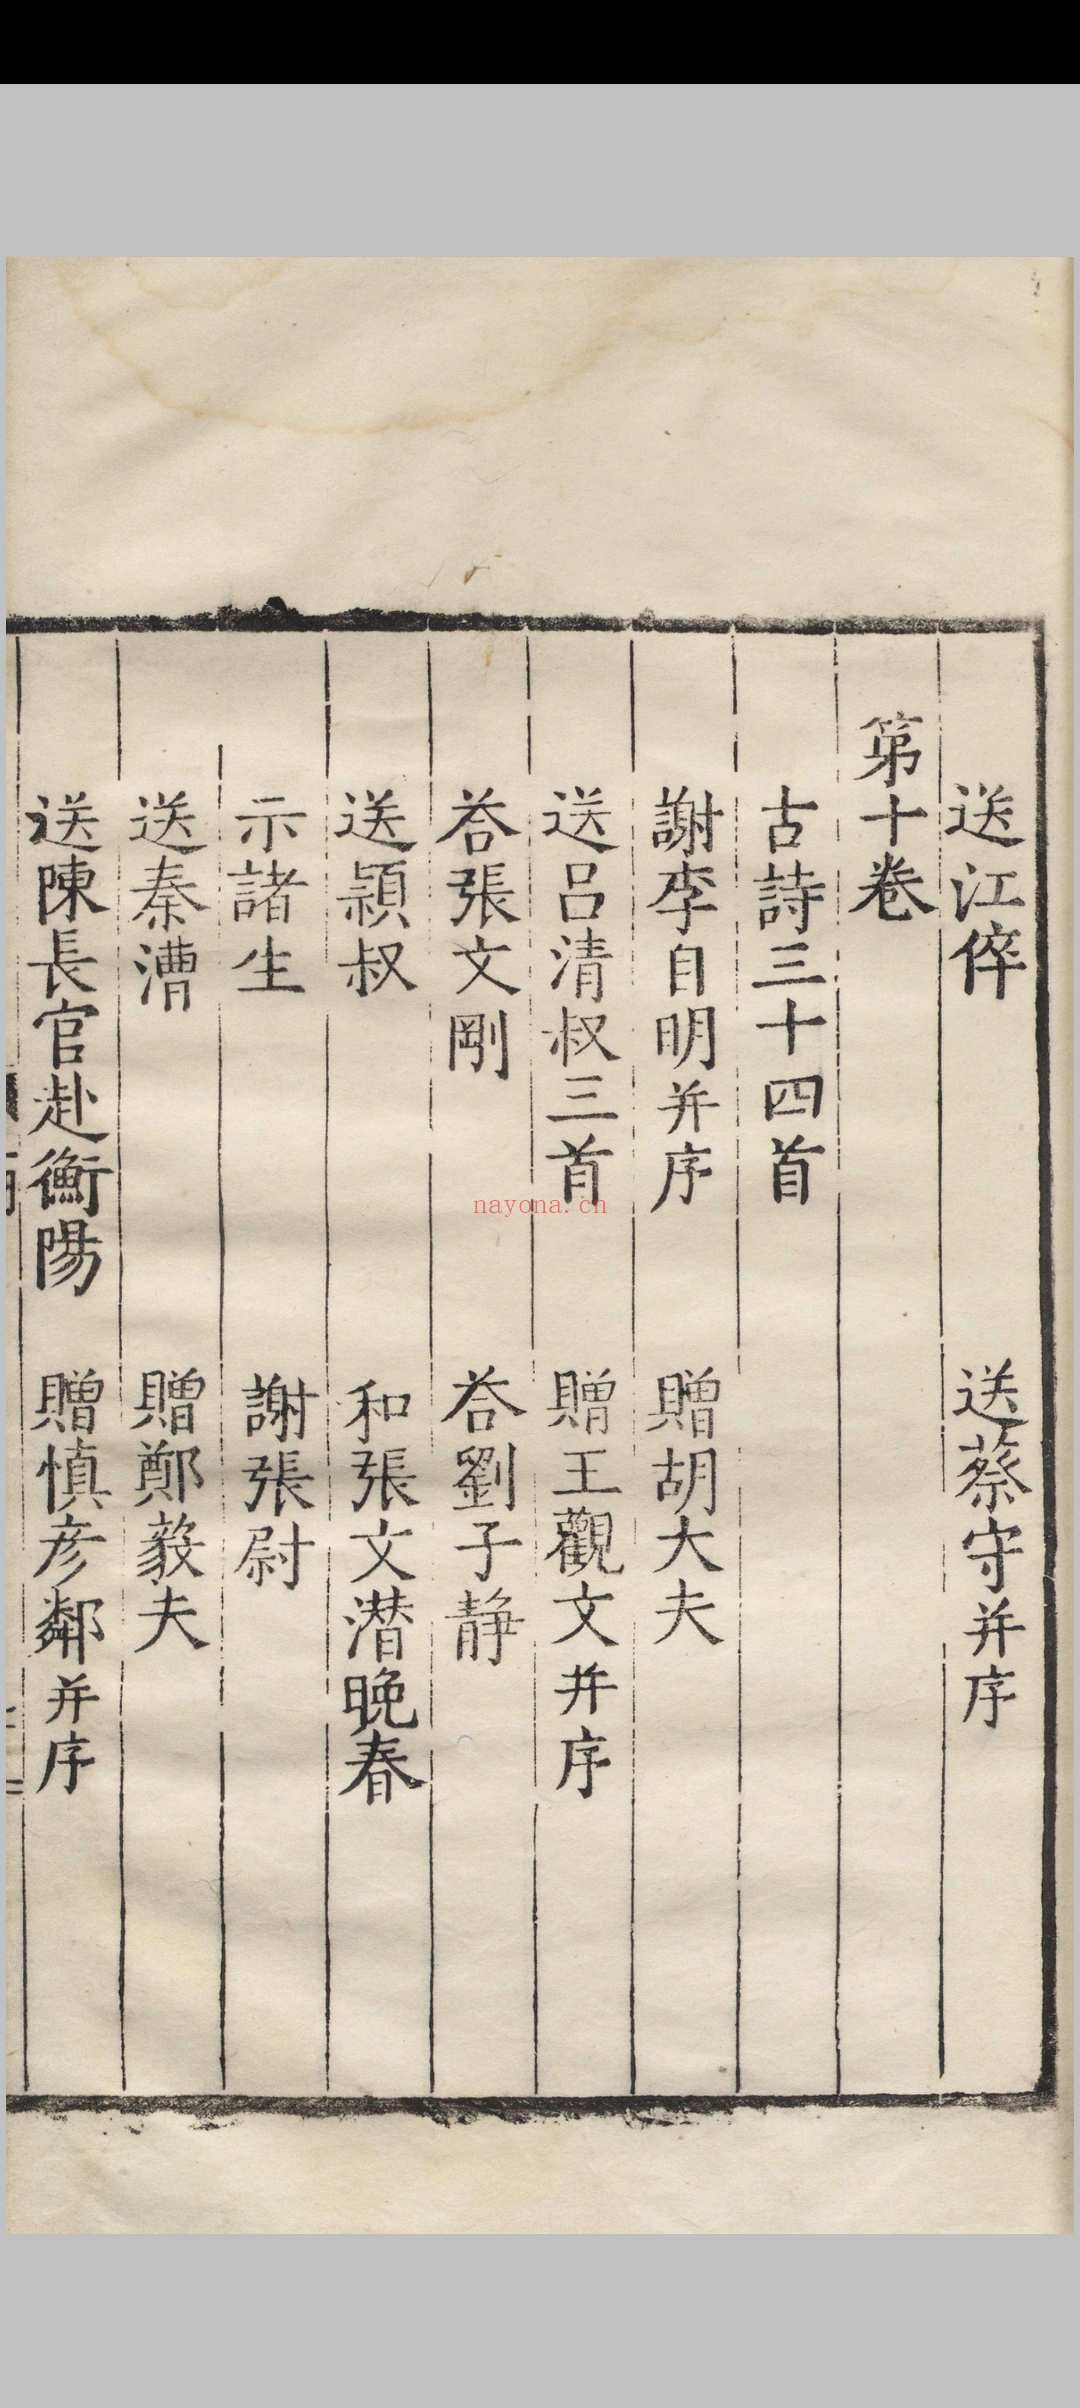 送江倅　送蔡守并序
第十卷
古詩三十四首
謝李自明并序　贈胡大夫
送呂清叔三首　贈王觀文并序
荅張文剛　荅劉子静
送潁叔　和張文潜晚春
示諸生　謝張尉
送秦漕　贈鄭毅夫
送陳長官赴衡陽　贈慎彦鄰并序
nayona.cn